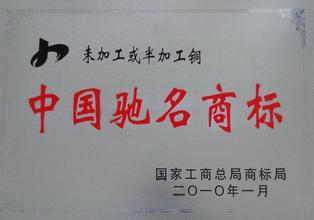 未加工或半加工铜
中国驰名商标
国家工商总局商标局
二〇一〇年一月